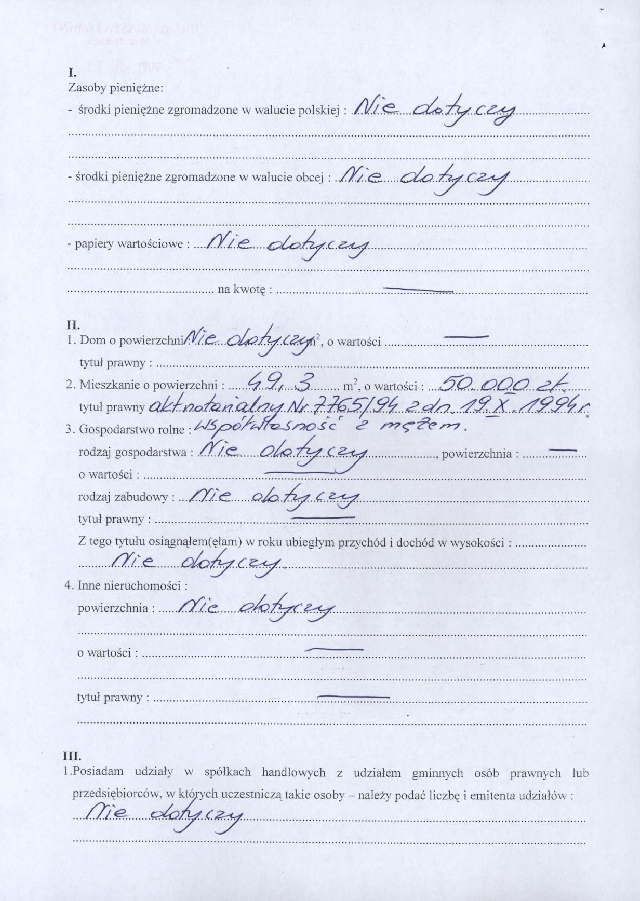 I.
Zasoby pieniężne:
- środki pieniężne zgromadzone w walucie polskiej : Nie dotyczy
- środki pieniężne zgromadzone w walucie obcej : Nie dotyczy
- papiery wartościowe : Nie dotyczy
na kwotę :
II.
1. Dom o powierzchni Nie dotyczy m², o wartości
tytuł prawny :
2. Mieszkanie o powierzchni : 49,3 m², o wartości : 50.000 zł.
tytuł prawny akt notarialny Nr 7765/94 z dn. 19.X.1994r.
3. Gospodarstwo rolne : współwłasność z mężem.
rodzaj gospodarstwa : Nie dotyczy, powierzchnia :
o wartości :
rodzaj zabudowy : Nie dotyczy
tytuł prawny :
Z tego tytułu osiągnąłem(ęłam) w roku ubiegłym przychód i dochód w wysokości :
Nie dotyczy
4. Inne nieruchomości :
powierzchnia : Nie dotyczy
o wartości :
tytuł prawny :
III.
1.Posiadam udziały w spółkach handlowych z udziałem gminnych osób prawnych lub
przedsiębiorców, w których uczestniczą takie osoby – należy podać liczbę i emitenta udziałów :
Nie dotyczy